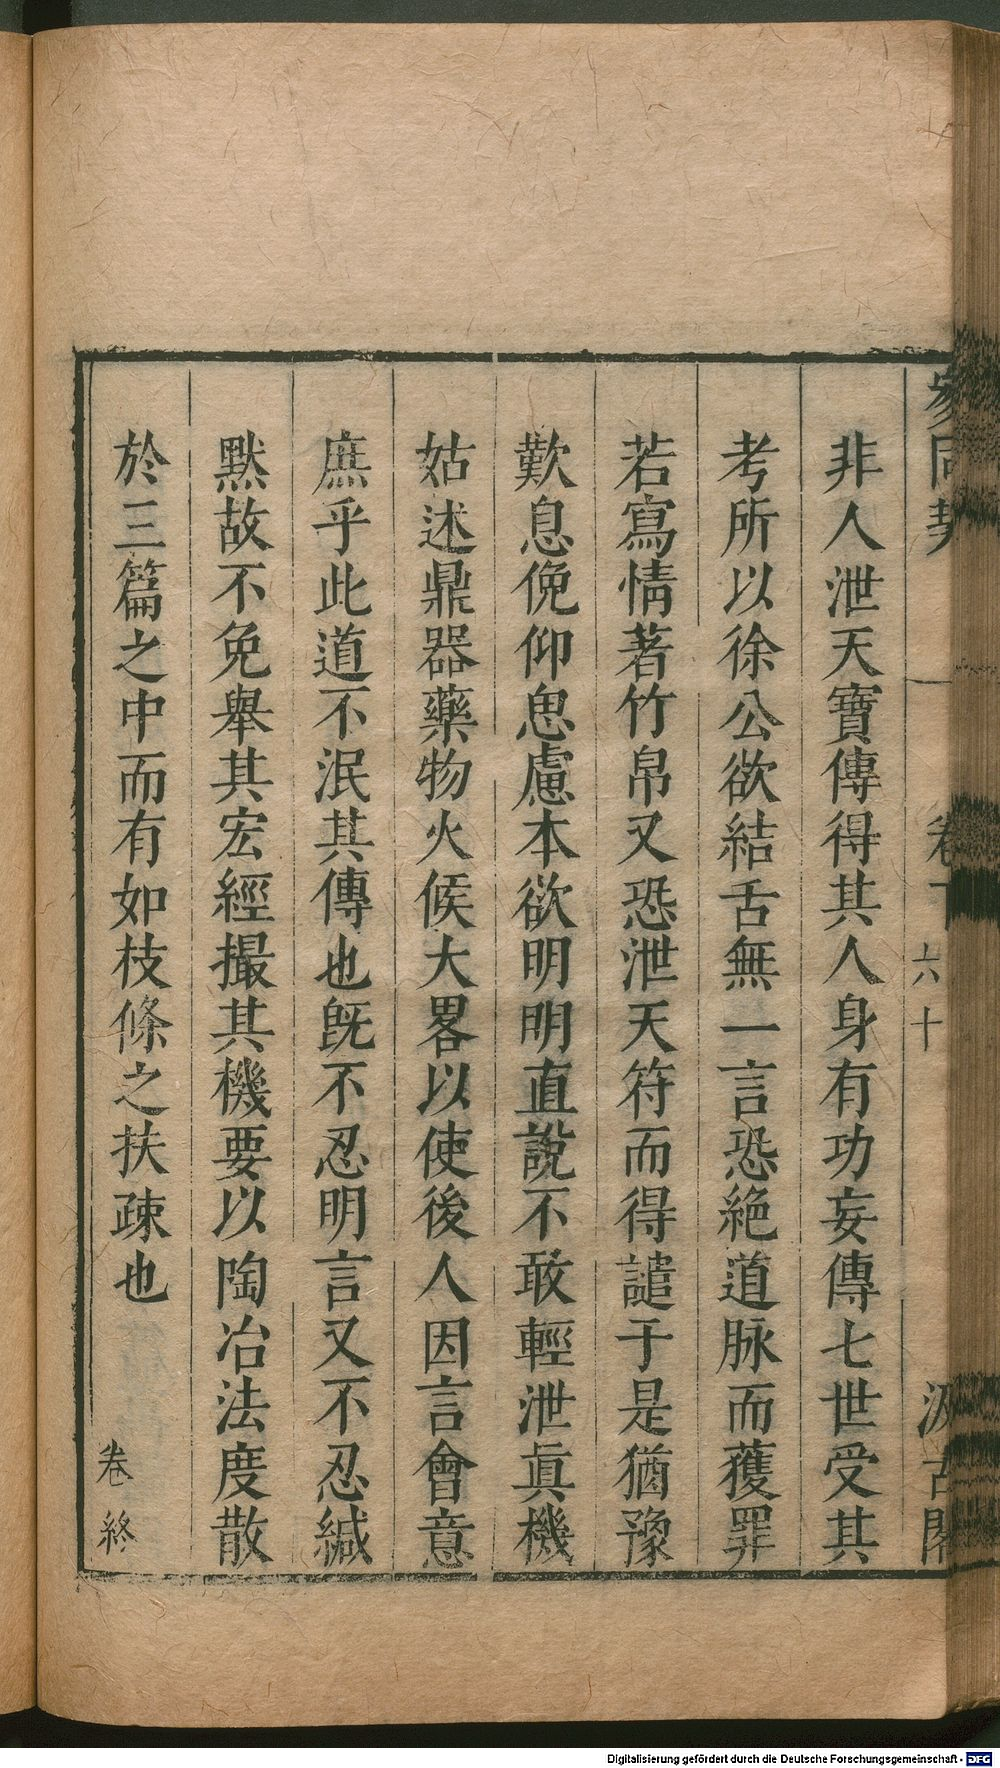 參同契
卷下 六十
汲古閣
非人泄天寶傳得其人身有功妄傳七世受其
考所以徐公欲結舌無一言恐絕道脉而獲罪
若寫情著竹帛又恐泄天符而得譴于是猶豫
歎息俛仰思慮本欲明明直說不敢輕泄眞機
姑述鼎器藥物火候大畧以使後人因言會意
庶乎此道不泯其傳也旣不忍明言又不忍緘
默故不免舉其宏經撮其機要以陶冶法度散
於三篇之中而有如枝條之扶疎也
卷終
Digitalisierung gefördert durch die Deutsche Forschungsgemeinschaft - DFG